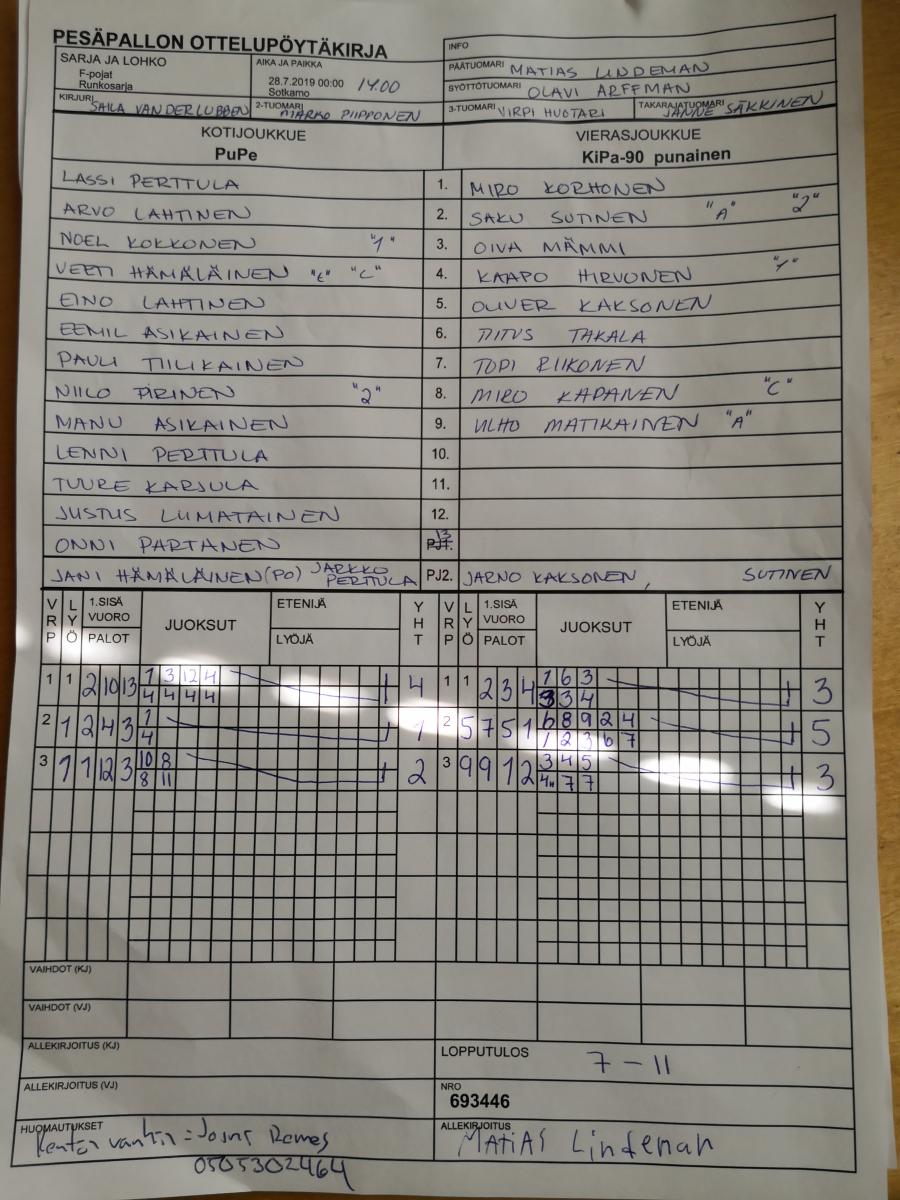 PESÄPALLON OTTELUPÖYTÄKIRJA
SARJA JA LOHKO
F-pojat
Runkosarja
AIKA JA PAIKKA
28.7.2019 00:00 14.00
Sotkamo
INFO
PÄÄTUOMARI MATIAS LINDEMAN
SYÖTTÖTUOMARI OLAVI ARFFMAN
KIRJURI SAILA VAN DER LUBBEN
2-TUOMARI MARKO PIIPPONEN
3-TUOMARI VIRPI HUOTARI
TAKARAJATUOMARI JANNE SÄKKINEN
KOTIJOUKKUE
PuPe
VIERASJOUKKUE
KiPa-90 punainen
LASSI PERTTULA 1. MIRO KORHONEN
ARVO LAHTINEN 2. SAKU SUTINEN "A" "2"
NOEL KOKKONEN "1" 3. OIVA MÄMMI
VEETI HÄMÄLÄINEN "L" "C" 4. KAAPO HIRVONEN "1"
EINO LAHTINEN 5. OLIVER KAKSONEN
EEMIL ASIKAINEN 6. TIITUS TAKALA
PAULI TIILIKAINEN 7. TOPI RIIKONEN
NIILO PIRINEN "2" 8. MIRO KAPANEN "C"
MANU ASIKAINEN 9. ULHO MATIKAINEN "A"
LENNI PERTTULA 10.
TUURE KARJULA 11.
JUSTUS LUMATAINEN 12.
ONNI PARTANEN 13 PJ1.
JANI HÄMÄLÄINEN (PO) JARKKO PERTTULA PJ2. JARNO KAKSONEN, SUTINEN
VRP LYÖ 1.SISÄ VUORO PALOT JUOKSUT ETENIJÄ LYÖJÄ YHT VRP LYÖ 1.SISÄ VUORO PALOT JUOKSUT ETENIJÄ LYÖJÄ YHT
1 1 2 10 13 1 3 12 4 4 1 1 2 3 4 1 6 3 3
4 4 4 4 3 3 4
2 1 2 4 3 1 1 2 5 7 5 1 6 8 9 2 4 5
4 1 2 3 6 7
3 1 1 12 3 10 8 2 3 9 9 1 2 3 4 5 3
8 11 4 7 7
VAIHDOT (KJ)
VAIHDOT (VJ)
ALLEKIRJOITUS (KJ)
LOPPUTULOS 7 - 11
ALLEKIRJOITUS (VJ)
NRO
693446
HUOMAUTUKSET
Kentän vanhin = Joona Remes
0505302464
ALLEKIRJOITUS
MATIAS Lindeman